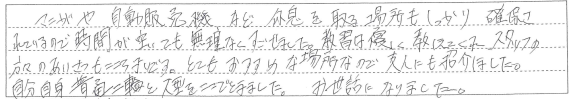 マンガや自動販売機など休息を取る場所もしっかり確保さ
れているので時間が空いても無理なくすごせました。教習は優しく教えてくれスタッフの
方々のあいさつもここちよいです。とてもおすすめな場所なので友人にも紹介しました。
自分自身普通二輪と大型をここでとりました。お世話になりました。